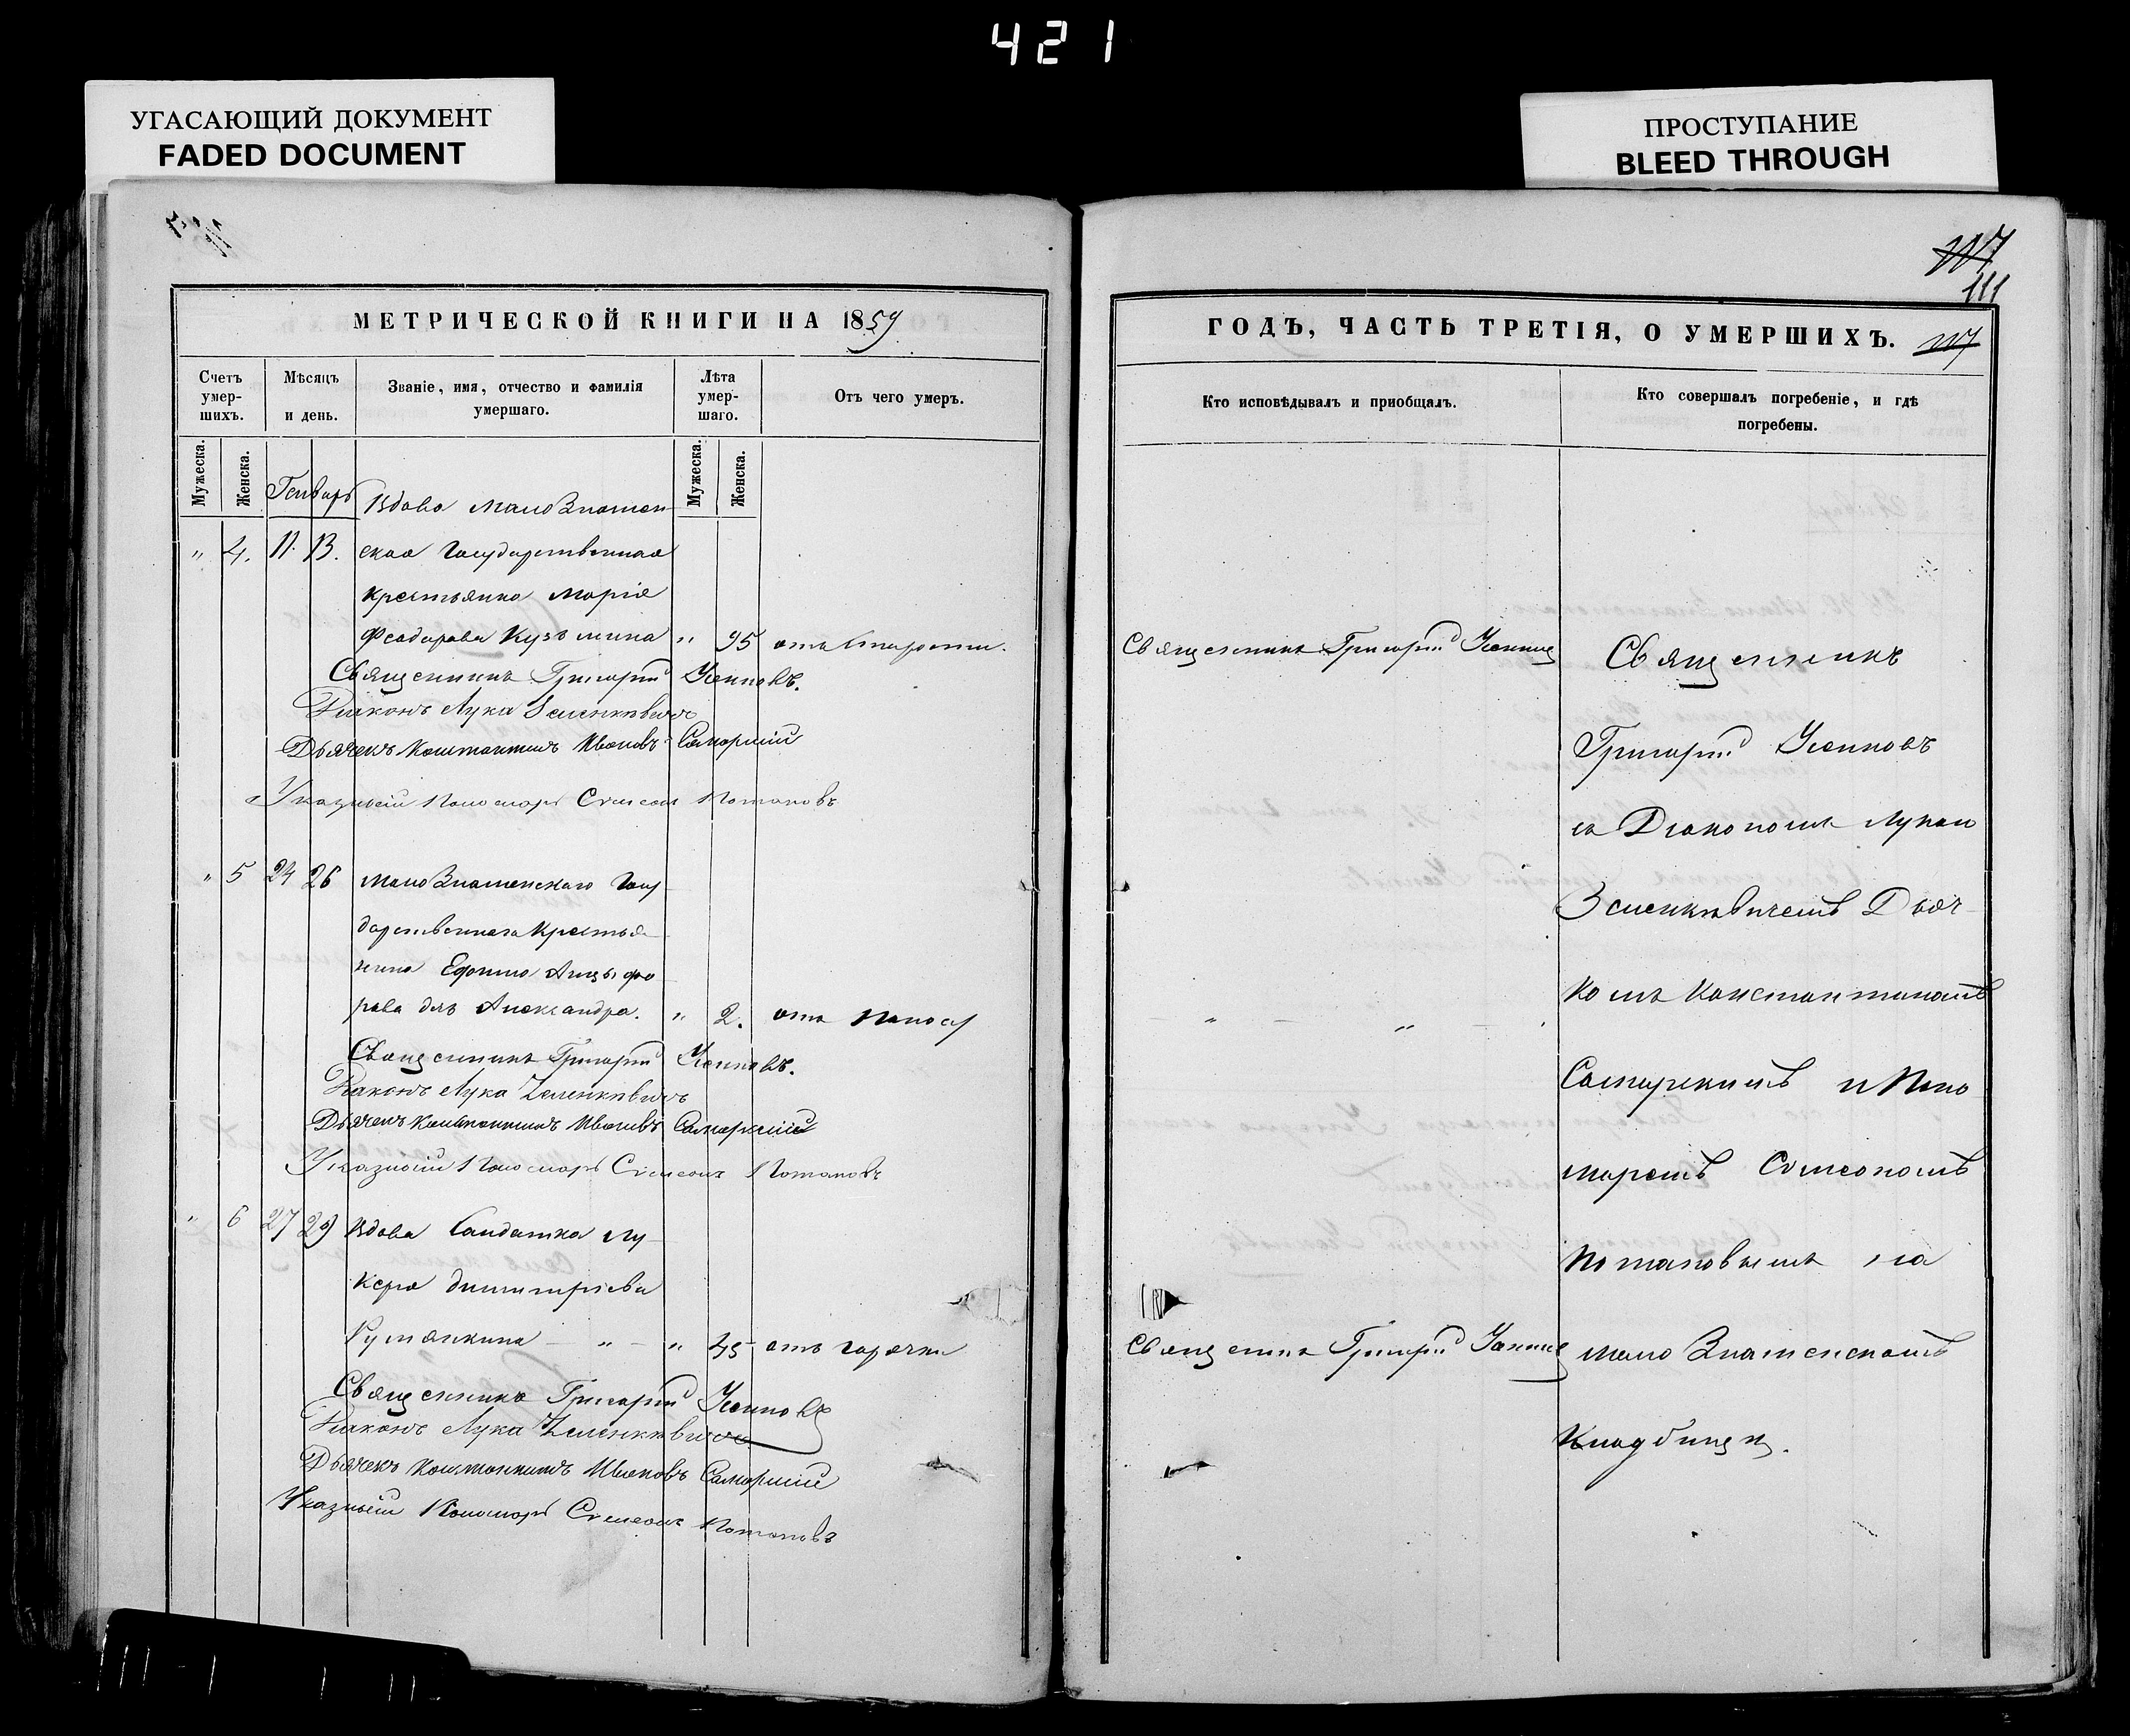 421
УГАСАЮЩИЙ ДОКУМЕНТ
FADED DOCUMENT
ПРОСТУПАНИЕ
BLEED THROUGH
МЕТРИЧЕСКОЙ КНИГИ НА 1859
Счетъ умер-шихъ.
Мѣсяцъ и день.
Званіе, имя, отчество и фамилія умершаго.
Лѣта умер-шаго.
Отъ чего умеръ.
Мужеска.
Женска.
Генварь
Мужеска.
Женска.
Вдова МалоЗнамен-
" 4. 11. 13. ская Государственная
крестьянка Марія
Феодорова Кузьмина " 95 отъ старости.
Священникъ Григорій Усиновъ.
Діаконъ Лука Зеленкѣвичъ
Дьячекъ Константинъ Ивановъ Самарскій
Указный Пономарь Сѵмеонъ Потаповъ
" 5 24 26 МалоЗнаменскаго Госу-
дарственнаго Крестья-
нина
рова дочь Александра. " 2. отъ поносу
Священникъ Григорій Усиновъ.
Діаконъ Лука Зеленкѣвичъ
Дьячекъ Константинъ Ивановъ Самарскій
Указный Пономарь Сѵмеонъ Потаповъ
" 6 27 29 Вдова Солдатка Лу-
керя Димитріева
" " 45 отъ горячки
Священникъ Григорій Усиновъ
Діаконъ Лука Зеленкѣвичъ
Дьячекъ Константинъ Ивановъ Самарскій
Указный Пономарь Сѵмеонъ Потаповъ
117
111
ГОДЪ, ЧАСТЬ ТРЕТІЯ, О УМЕРШИХЪ. 117
Кто исповѣдывалъ и приобщалъ.
Кто совершалъ погребеніе, и гдѣ погребены.
Священникъ Григорій Усинов
Священникъ
Григорій Усиновъ
съ Діакономъ Лукою
Зеленкѣвичемъ Дьяч-
комъ Константиномъ
" "
Самарскимъ и Поно
маремъ Сѵмеономъ
Потаповымъ на
Священникъ Григорій Усинов
мало Знаменскомъ
Кладбищѣ.